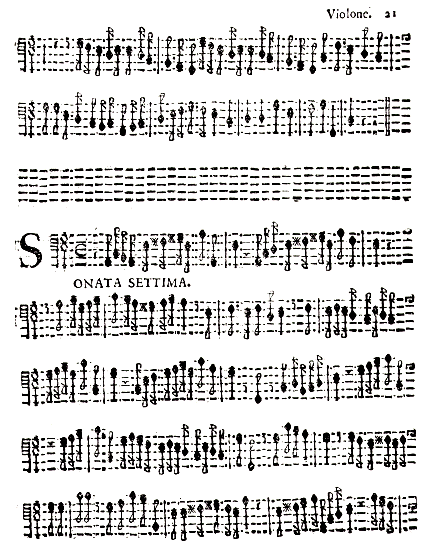 Violone. 21
SONATA SETTIMA.